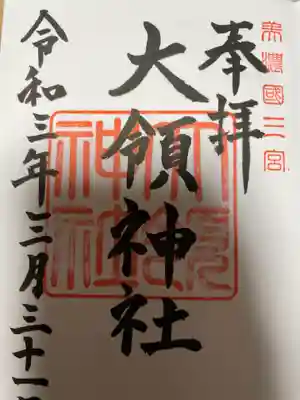 美濃國二宮
奉拝
大領神社
大領神社
令和三年三月三十一日